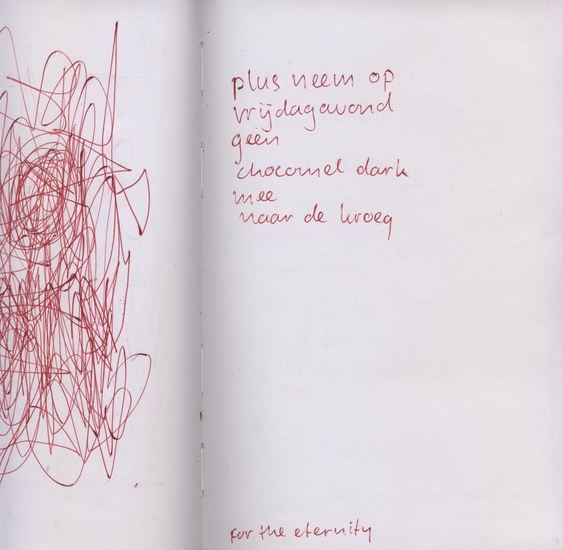 plus neem op
vrijdagavond
geen
chocomel dark
mee
naar de kroeg
for the eternity